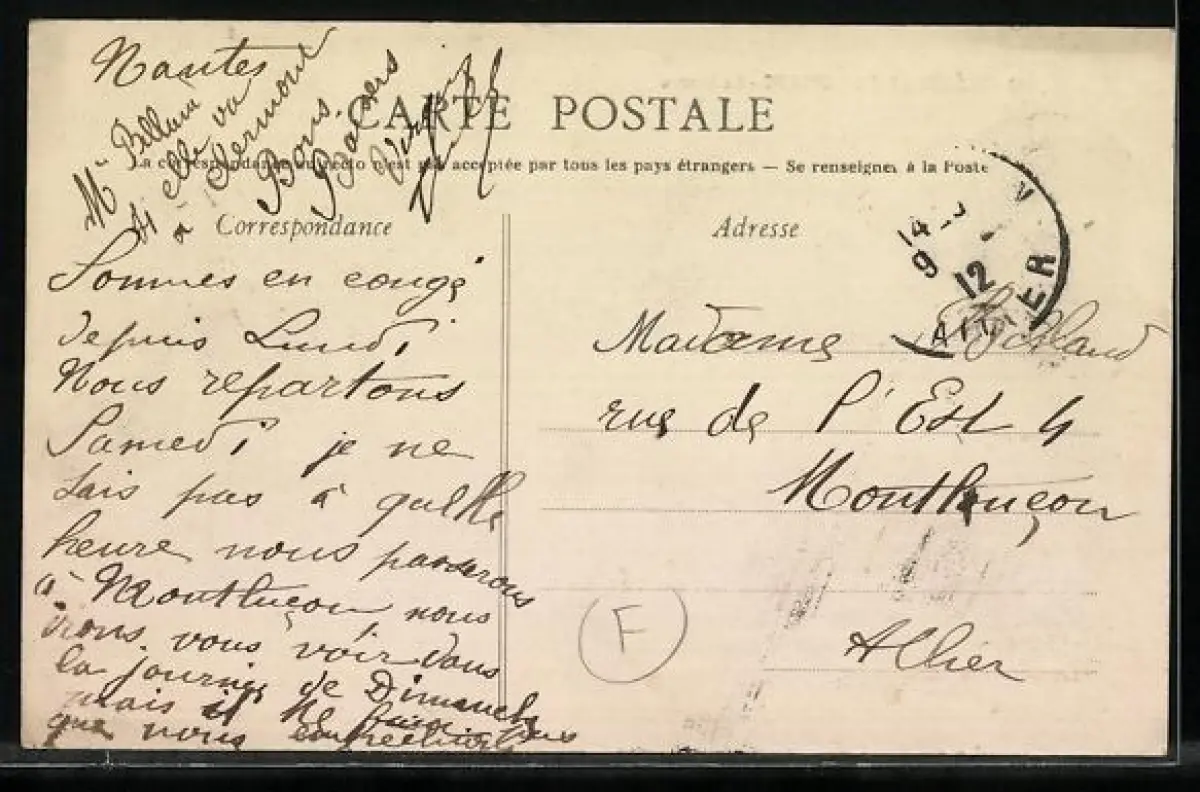 Nantes
Mme Billaud
si elle va
à Clermont
Bons
Baisers
CARTE POSTALE
La correspondance au recto n'est pas acceptée par tous les pays étrangers — Se renseigner à la Poste
Correspondance
Adresse
Sommes en congé
depuis Lundi
Nous repartons
Samedi je ne
sais pas à quelle
heure nous passerons
à Montluçon nous
irons vous voir dans
la journée de Dimanche
mais il ne
que nous
14
9
12
ALLIER
Madame
rue de l'Est 4
Montluçon
Allier
F